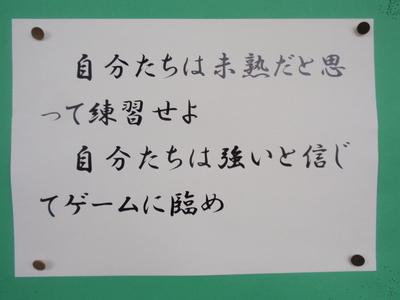 自分たちは未熟だと思
って練習せよ
自分たちは強いと信じ
てゲームに臨め